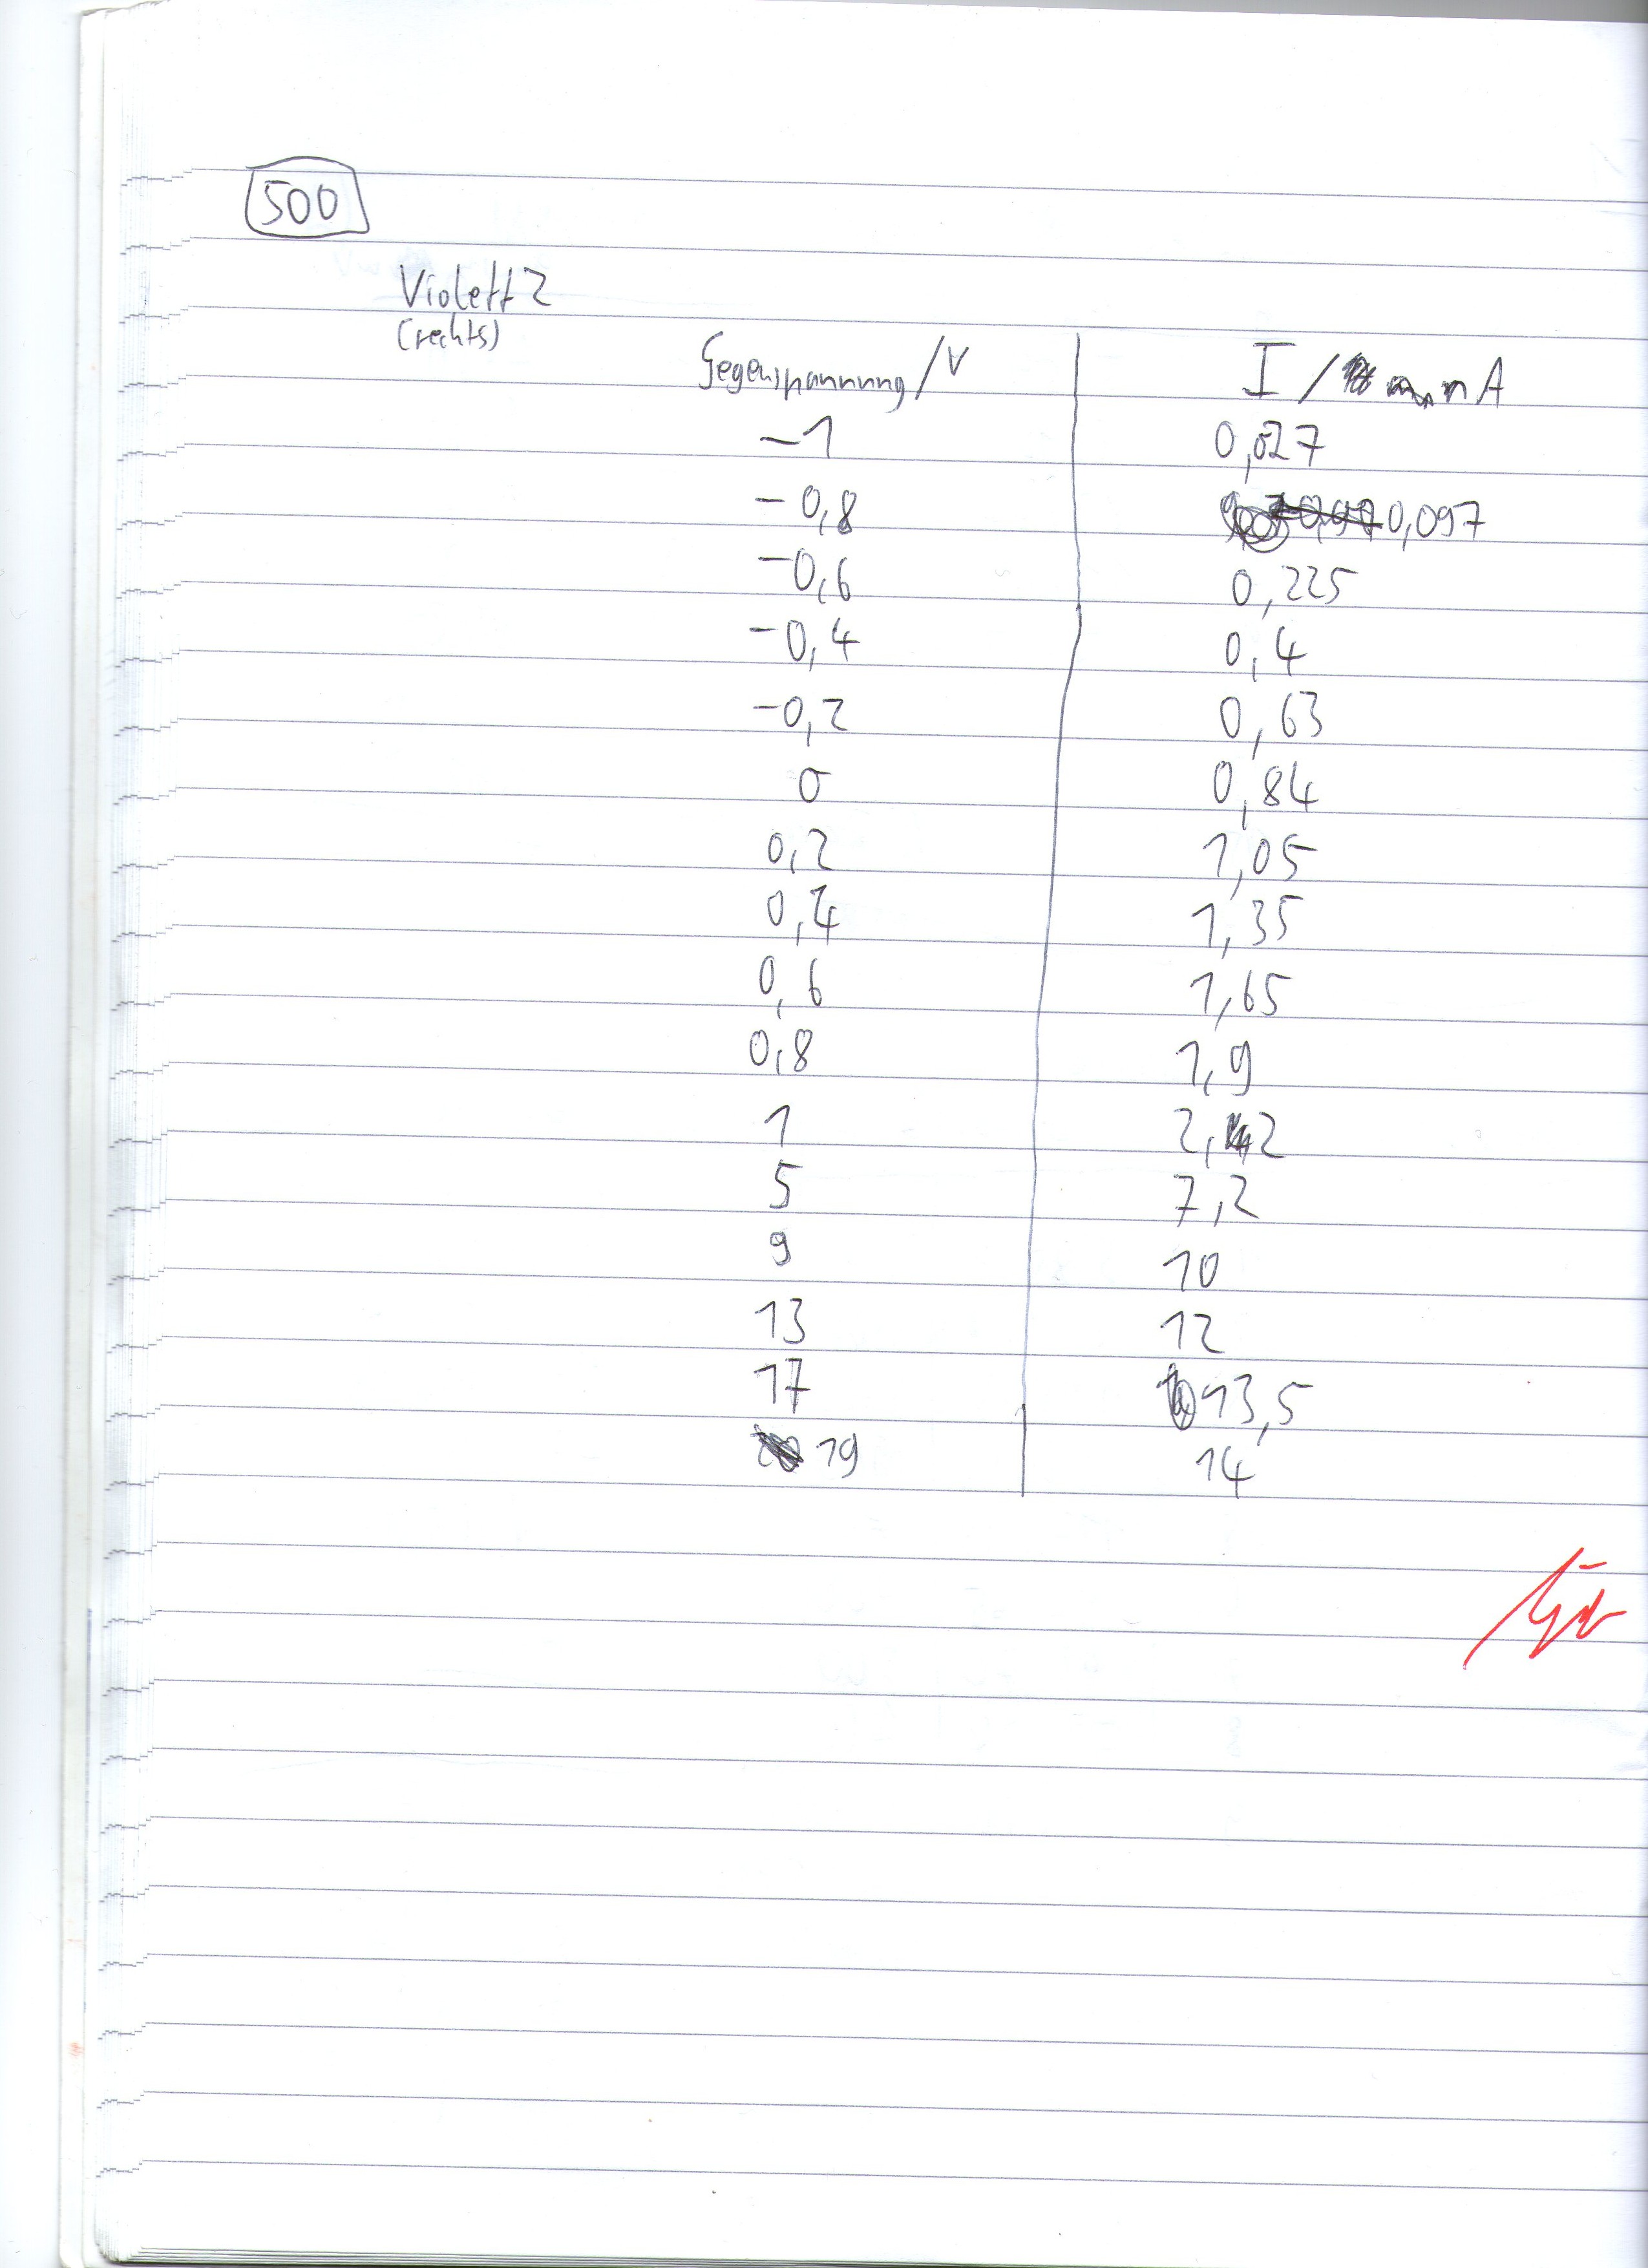 500
Violett 2
(rechts)
Gegenspannung/V I / nA
-1 0,027
-0,8 0,097
-0,6 0,225
-0,4 0,4
-0,2 0,63
0 0,84
0,2 1,05
0,4 1,35
0,6 1,65
0,8 1,9
1 2,2
5 7,2
9 10
13 12
17 13,5
19 14